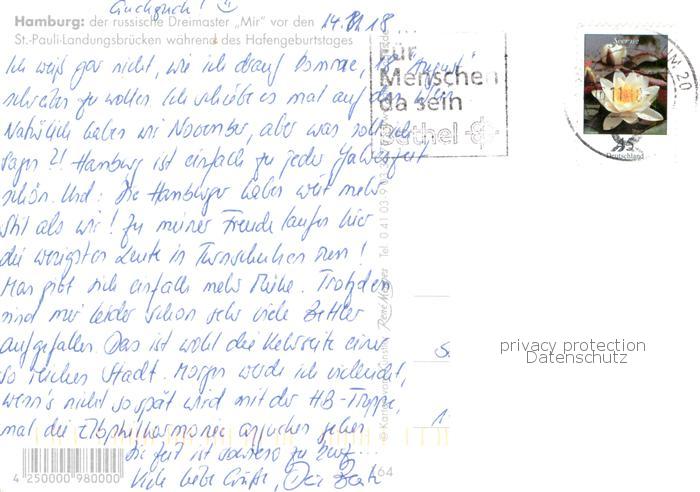 Guckguck! ☺
14.11.18
Hamburg: der russische Dreimaster „Mir" vor den
St.-Pauli-Landungsbrücken während des Hafengeburtstages
Ich weiß gar nicht, wie ich drauf komme, "August"
schreiben zu wollen. Ich schiebe es mal auf den Wein.
Natürlich haben wir November, aber was soll ich
sagen?! Hamburg ist einfach zu jeder Jahreszeit
schön. Und: Die Hamburger haben weit mehr
Stil als wir! Zu meiner Freude laufen hier
die wenigsten Leute in Turnschuhen rum!
Man gibt sich einfach mehr Mühe. Trotzdem
sind mir leider schon sehr viele Bettler
aufgefallen. Das ist wohl die Kehrseite einer
so reichen Stadt. Morgen werde ich vielleicht,
wenn's nicht so spät wird mit der HB-Truppe,
mal die Elbphilharmonie angucken gehen.
Die Zeit ist sowieso zu kurz...
Viele liebe Grüße, Die
4 250000 980000
64
Für
Menschen
da sein
Bethel
Seerose
45
Deutschland
20
René Menges
Tel. 0 41 03-9 03
S
1
privacy protection
Datenschutz